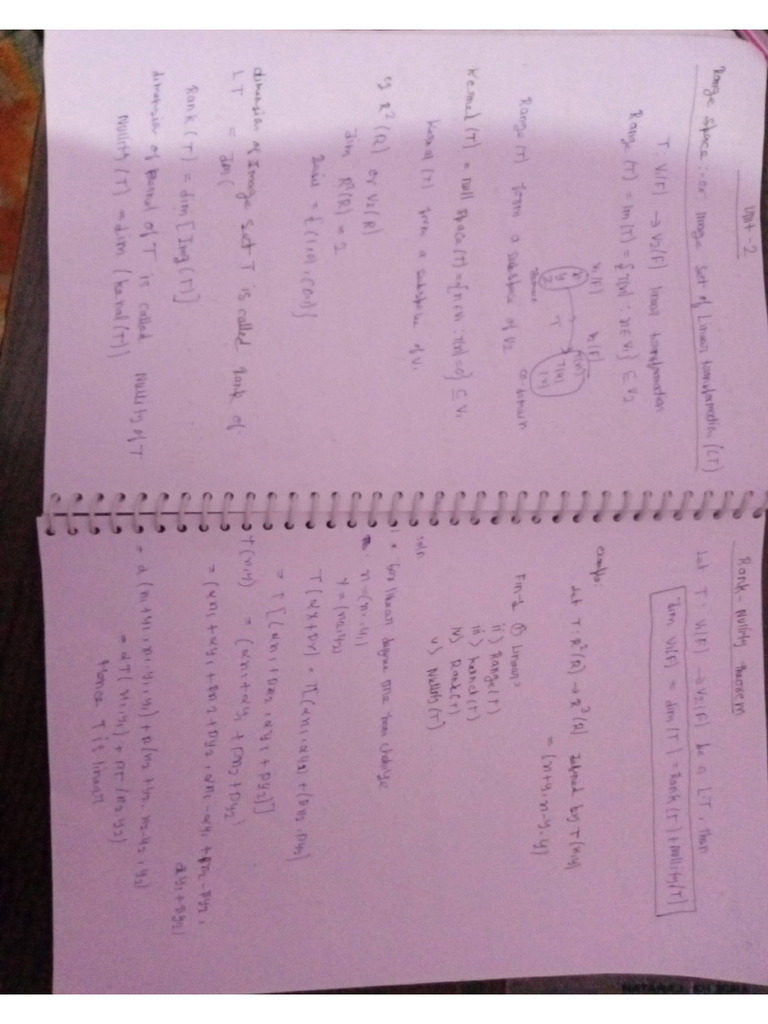 Unit-2
Range space :- or Image set of Linear transformation (LT)
T: V₁(F) → V₂(F) linear transformation
Range (T) = Im(T) = {T(x) : x ∈ V₁} ⊆ V₂
V₁(F) V₂(F)
x y z T T(x) T(y) T(z)
Domain co-domain
Range (T) form a subspace of V₂
Kernel (T) = null space (T) = { : T(x)=0} ⊆ V₁
Kernel (T) form a subspace of V₁
eg R²(R) or V₂(R)
dim R²(R) = 2
= {(1,0), (0,1)}
dimension of Image set T is called Rank of
LT = Im(
Rank (T) = dim [Img (T)]
dimension of kernel of T is called Nullity of T
Nullity (T) = dim (kernel(T))
Rank - Nullity theorem
Let T : V₁(F) → V₂(F) be a LT, then
dim V₁(F) = dim (T) = Rank (T) + Nullity (T)
example:
Let T: R²(R) → R³(R) defined by T(x,y)
= (x+y, x-y, y)
Fin-1 i) Linear
ii) Range (T)
iii) Kernel (T)
iv) Rank (T)
v) Nullity (T)
soln
for linear degree one then change
x = (x₁, y₁)
y = (x₂, y₂)
T(αx + βy) = T[(αx₁, αy₁) + (βx₂, βy₂)]
= T[(αx₁ + βx₂, αy₁ + βy₂)]
T(x,y) = (αx₁ + αy₁ + βx₂ + βy₂)
= (αx₁ + αy₁ + βx₂ + βy₂, αx₁ - αy₁ + βx₂ - βy₂,
αy₁ + βy₂)
= α (x₁+y₁, x₁-y₁, y₁) + β(x₂+y₂, x₂-y₂, y₂)
= αT(x₁, y₁) + βT(x₂, y₂)
Hence T is linear